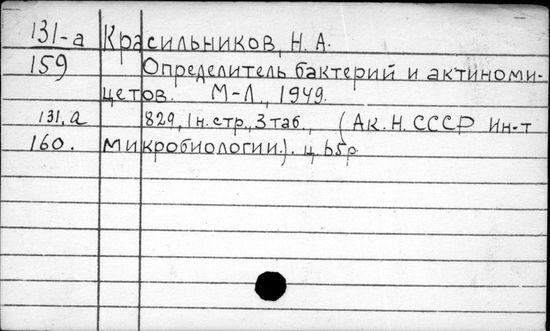 131-а Красильников, Н. А.
159 Определитель бактерий и актиноми-
цетов. М-Л., 1949.
131, а 829, 1 н. стр., 3 таб., (Ак. Н. СССР Ин-т
160. микробиологии.). ц. 65р.